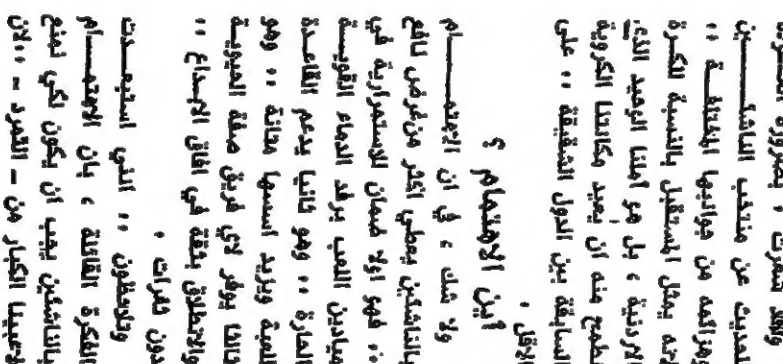 وقد شعرت ، بضرورة
الحديث عن منتخب الناشـــــئين
وهزائمه من جوانبها المختلفــة ..
وانه يمثل المستقبل بالنسبة للكرة
الاردنية ، بل هو أملنا الوحيد الذي
نطمح منه ان يعيد مكانتنا الكروية
السابقة بين الدول الشقيقة .. على
الاقل .
أين الاهتمام ؟
ولا شك ، في ان الاهتمـــــام
بالناشئين يعطي اكثر من غرض نافع
.. فهو اولا ضمان للاستمرارية في
ميادين اللعب برفد الدماء القويــة
الحارة .. وهو ثانيا يدعم القاعــدة
اللعبة ويزيد اسسها متانة .. وهو
ثالثا يوفر لاي فريق صفة الحيويــة
والانطلاق بثقة في افاق الابــداع ..
بدون ثغرات .
وتلاحظون .. انني استبعــدت
الفكرة القائلة ، بان الاهتمـــــام
بالناشئين يجب أن يكون لكي نمنع
لاعبينا الكبار من - التمرد - .. لان